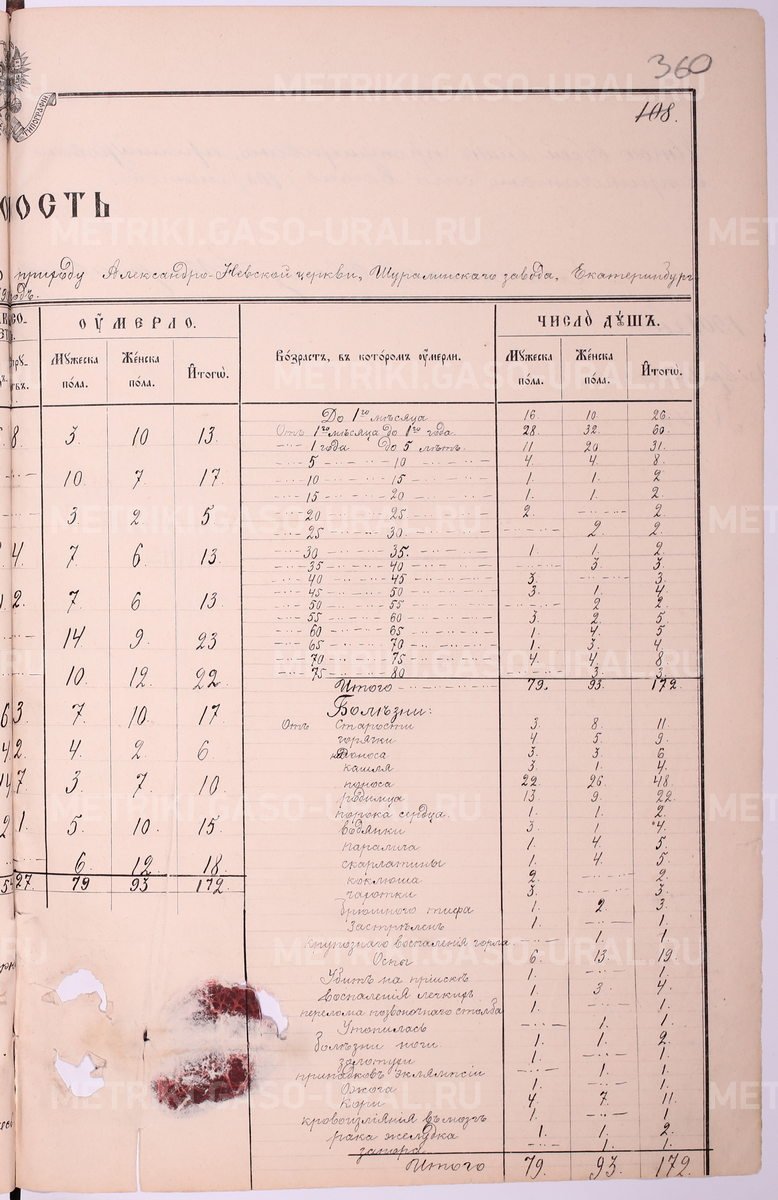 360
108.
ТИПОГРАФІИ
ОСТЬ
приходу Александро-Невской церкви, Шуралинскаго завода, Екатеринбург-
ОУМЕРЛО.
ЧИСЛО ДУШЪ.
Мужеска пола. Женска пола. Итогѡ.
Возрастъ, въ которомъ оумерли.
Мужеска пола. Женска пола. Итогѡ.
8. 3 10 13.
10. 7. 17
3 2 5
4. 7. 6. 13
2. 7. 6 13
14. 9. 23
10. 12. 22.
63. 7. 10. 17
42. 4. 2. 6
147 3. 7. 10
21. 5. 10. 15
6 12 18.
527 79 93 172.
До 1го мѣсяца 16. 10. 26.
Отъ 1го мѣсяца до 1го года. 28. 32. 60.
1 года до 5 лѣтъ. 11 20 31.
5 10 4. 4. 8.
10 15 1. 1. 2
15 20 1. 1. 2.
20 25 2. 2.
25 30 2. 2.
30 35. 1. 1. 2
35 40 3 3.
40 45 3. 3.
45 50 3. 1. 4
50 55 2 2.
55 60 3. 2. 5
60 65 1. 4. 5
65 70 1. 3. 4.
70 75 4. 4. 8
75 80 3. 3.
Итого 79. 93. 172.
Болѣзни:
Отъ Старости 3. 8. 11.
горячки 4. 5 9.
поноса 3. 3. 6
кашля 3. 1. 4.
поноса 22 26. 48.
родимца 13. 9. 22.
порока сердца 1. 1. 2.
водянки 3. 1. 4.
паралича 1. 4. 5.
скарлатины 1. 4. 5
коклюша 2. 2.
чахотки 3. 3.
брюшного тифа 1. 2 3.
Застрѣленъ 1. 1.
крупознаго воспаленія горла 1. 1
Оспы 6. 13 19.
Убитъ на пріискѣ 1. 1
Воспаленія легкихъ 1. 3. 4.
перелома позвоночнаго столба 1. 1.
Утопилась 1. 1.
болѣзни ноги 1. 1. 2
золотухи 1. 1.
припадковъ эклямпсіи 1. 1.
Ожога 1. 1.
Кори 4 7. 11.
кровоизліянія въ мозгъ 1. 1.
рака желудка 1. 1. 2
запора 1. 1.
Итого 79. 93. 172.
METRIKI.GASO-URAL.RU